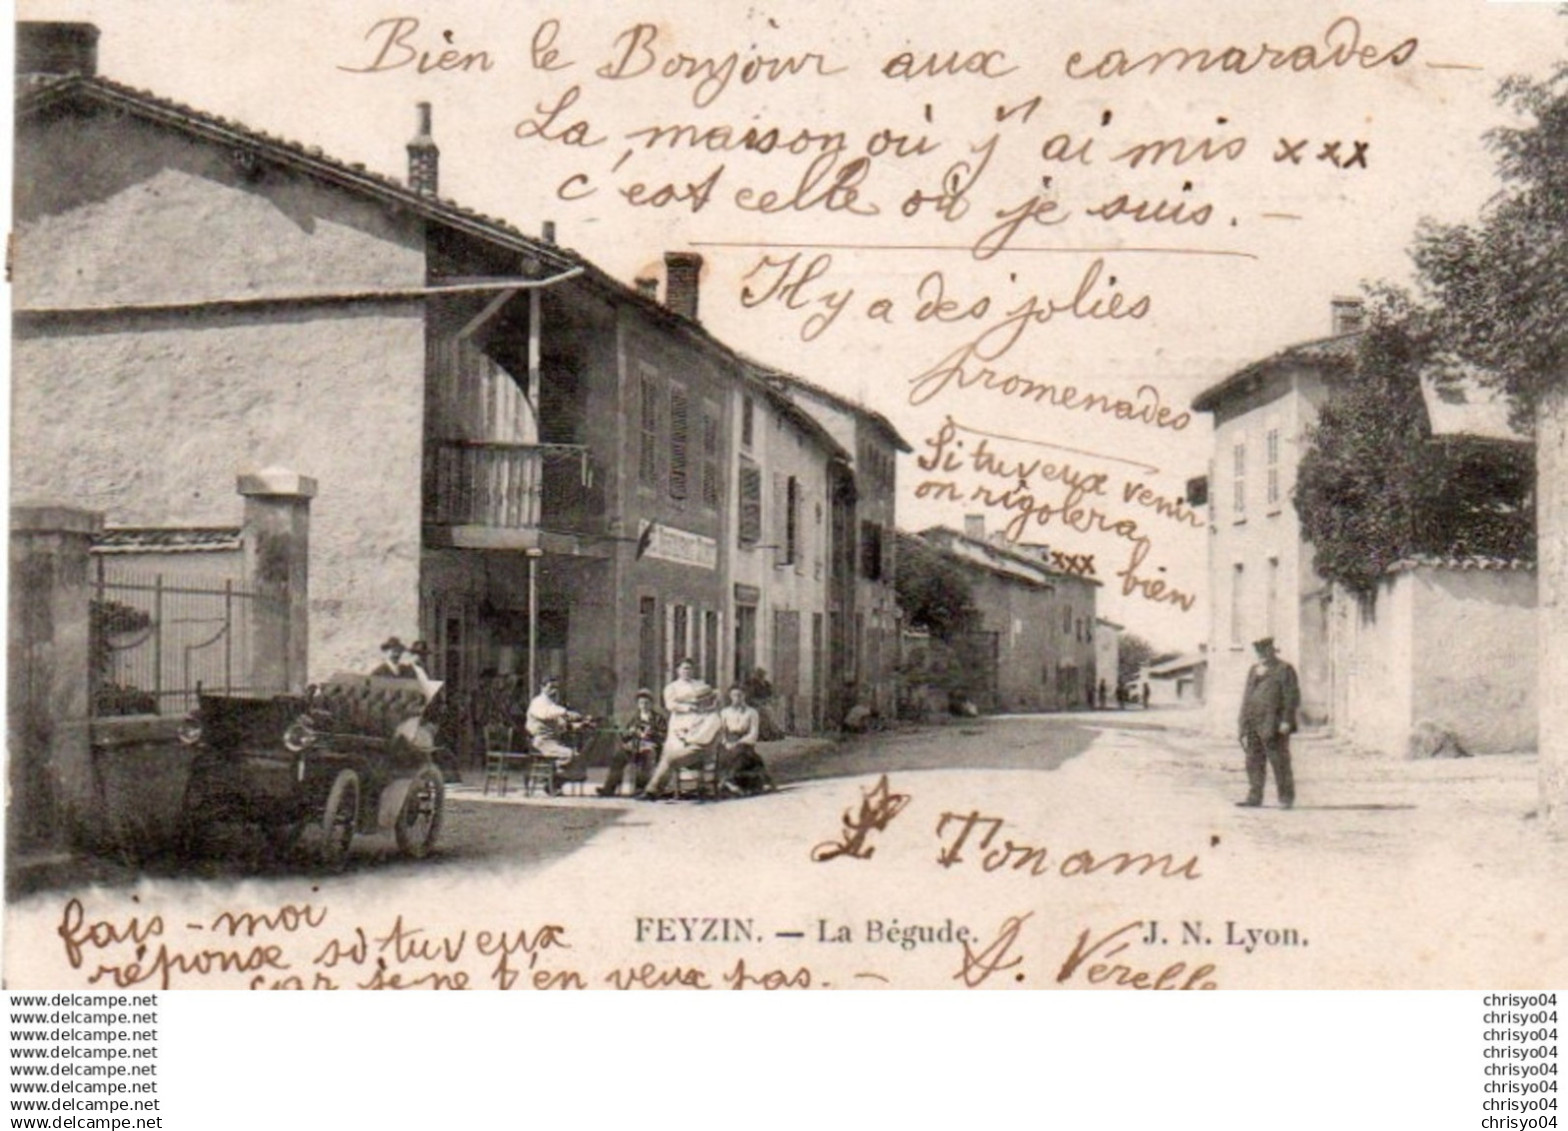 Bien le Bonjour aux camarades -
La maison où j'ai mis xxx
c'est celle où je suis. -
Il y a des jolies
promenades
Si tu veux venir
on rigolera
xxx bien
Ton ami
fais-moi
réponse si tu veux
car je ne t'en veux pas. -
FEYZIN. — La Bégude.
J. N. Lyon.
www.delcampe.net
www.delcampe.net
www.delcampe.net
www.delcampe.net
www.delcampe.net
www.delcampe.net
www.delcampe.net
www.delcampe.net
chrisyo04
chrisyo04
chrisyo04
chrisyo04
chrisyo04
chrisyo04
chrisyo04
chrisyo04